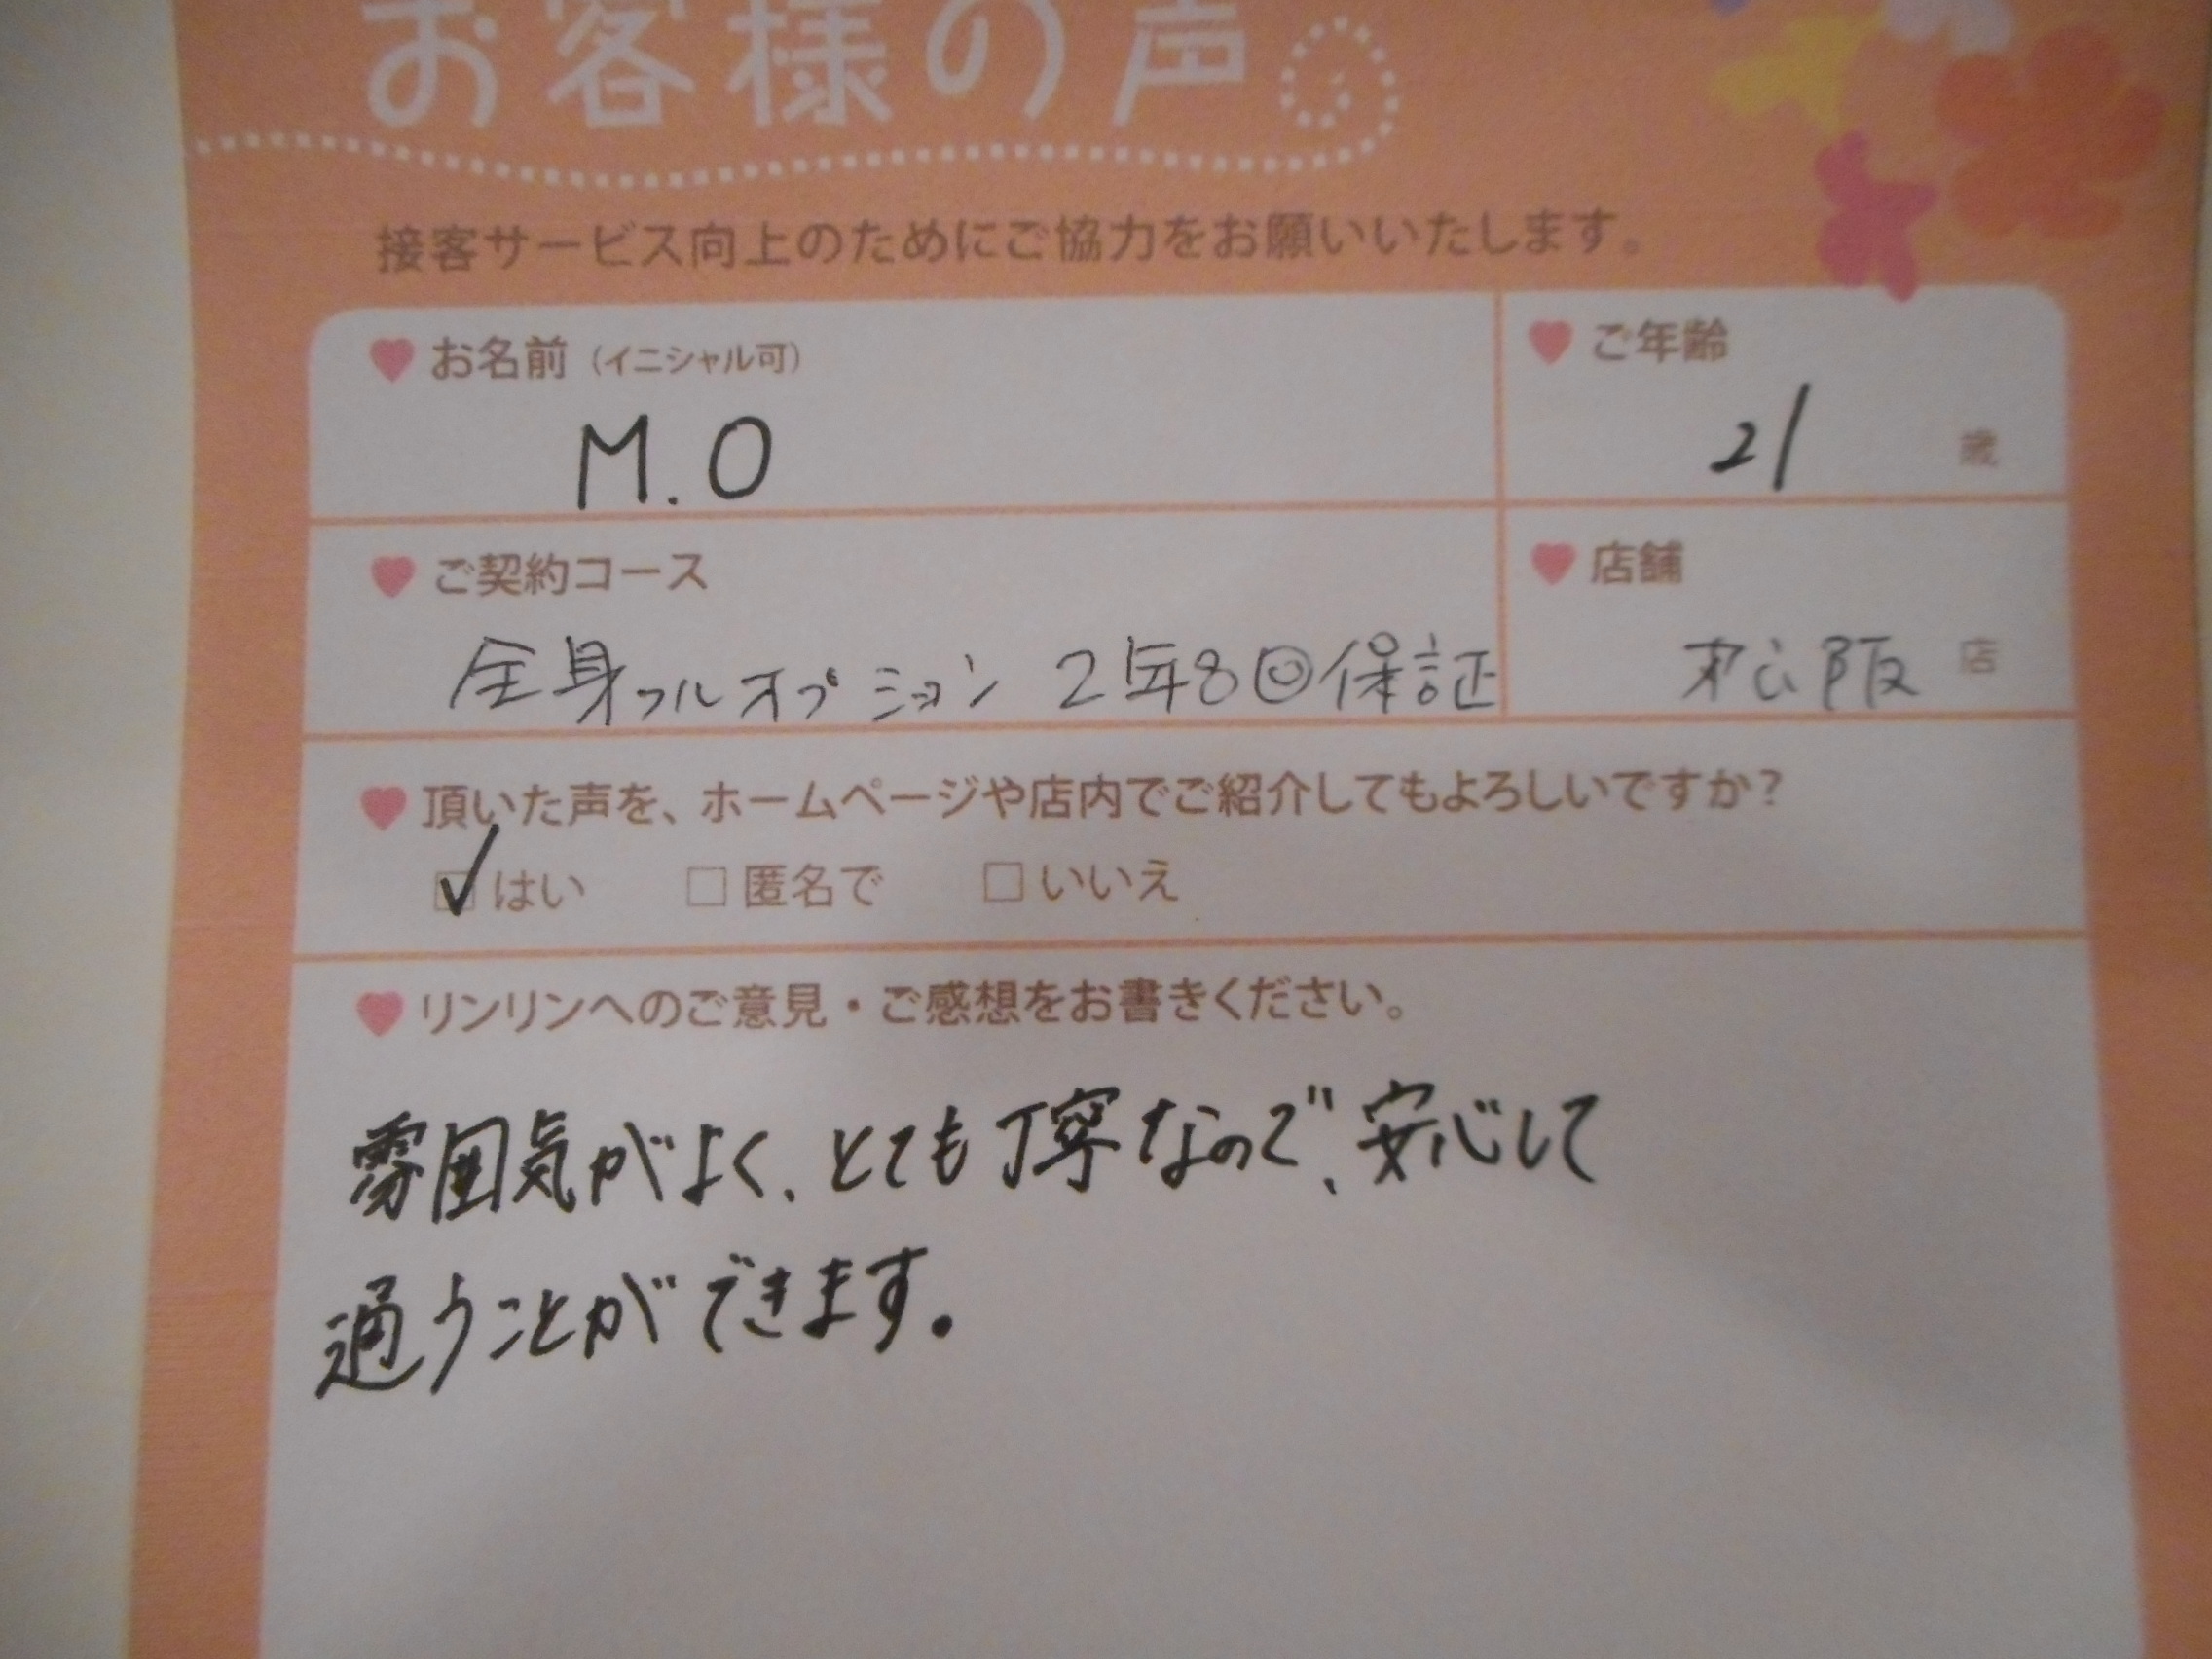 お客様の声
接客サービス向上のためにご協力をお願いいたします。
お名前（イニシャル可）
M.O
ご年齢
21 歳
ご契約コース
全身フルオプション 2年8回保証
店舗
松阪 店
頂いた声を、ホームページや店内でご紹介してもよろしいですか？
はい 匿名で いいえ
リンリンへのご意見・ご感想をお書きください。
雰囲気がよく、とても丁寧なので、安心して
通うことができます。